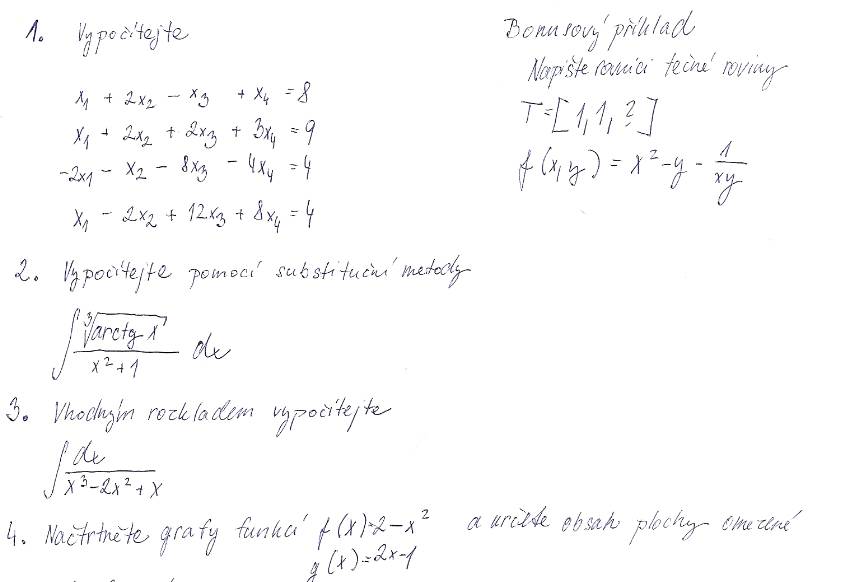 1. Vypočítejte
x₁ + 2x₂ - x₃ + x₄ = 8
x₁ + 2x₂ + 2x₃ + 3x₄ = 9
-2x₁ - x₂ - 8x₃ - 4x₄ = 4
x₁ - 2x₂ + 12x₃ + 8x₄ = 4
Bonusový příklad
Napište rovnici tečné roviny
T=[1,1,?]
f(x,y) = x² - y - 1/xy
2. Vypočítejte pomocí substituční metody
∫ ∛(arctg x) / (x²+1) dx
3. Vhodným rozkladem vypočítejte
∫ dx / (x³-2x²+x)
4. Načrtněte grafy funkcí f(x)=2-x² a určete obsah plochy omezené
g(x)=2x-1